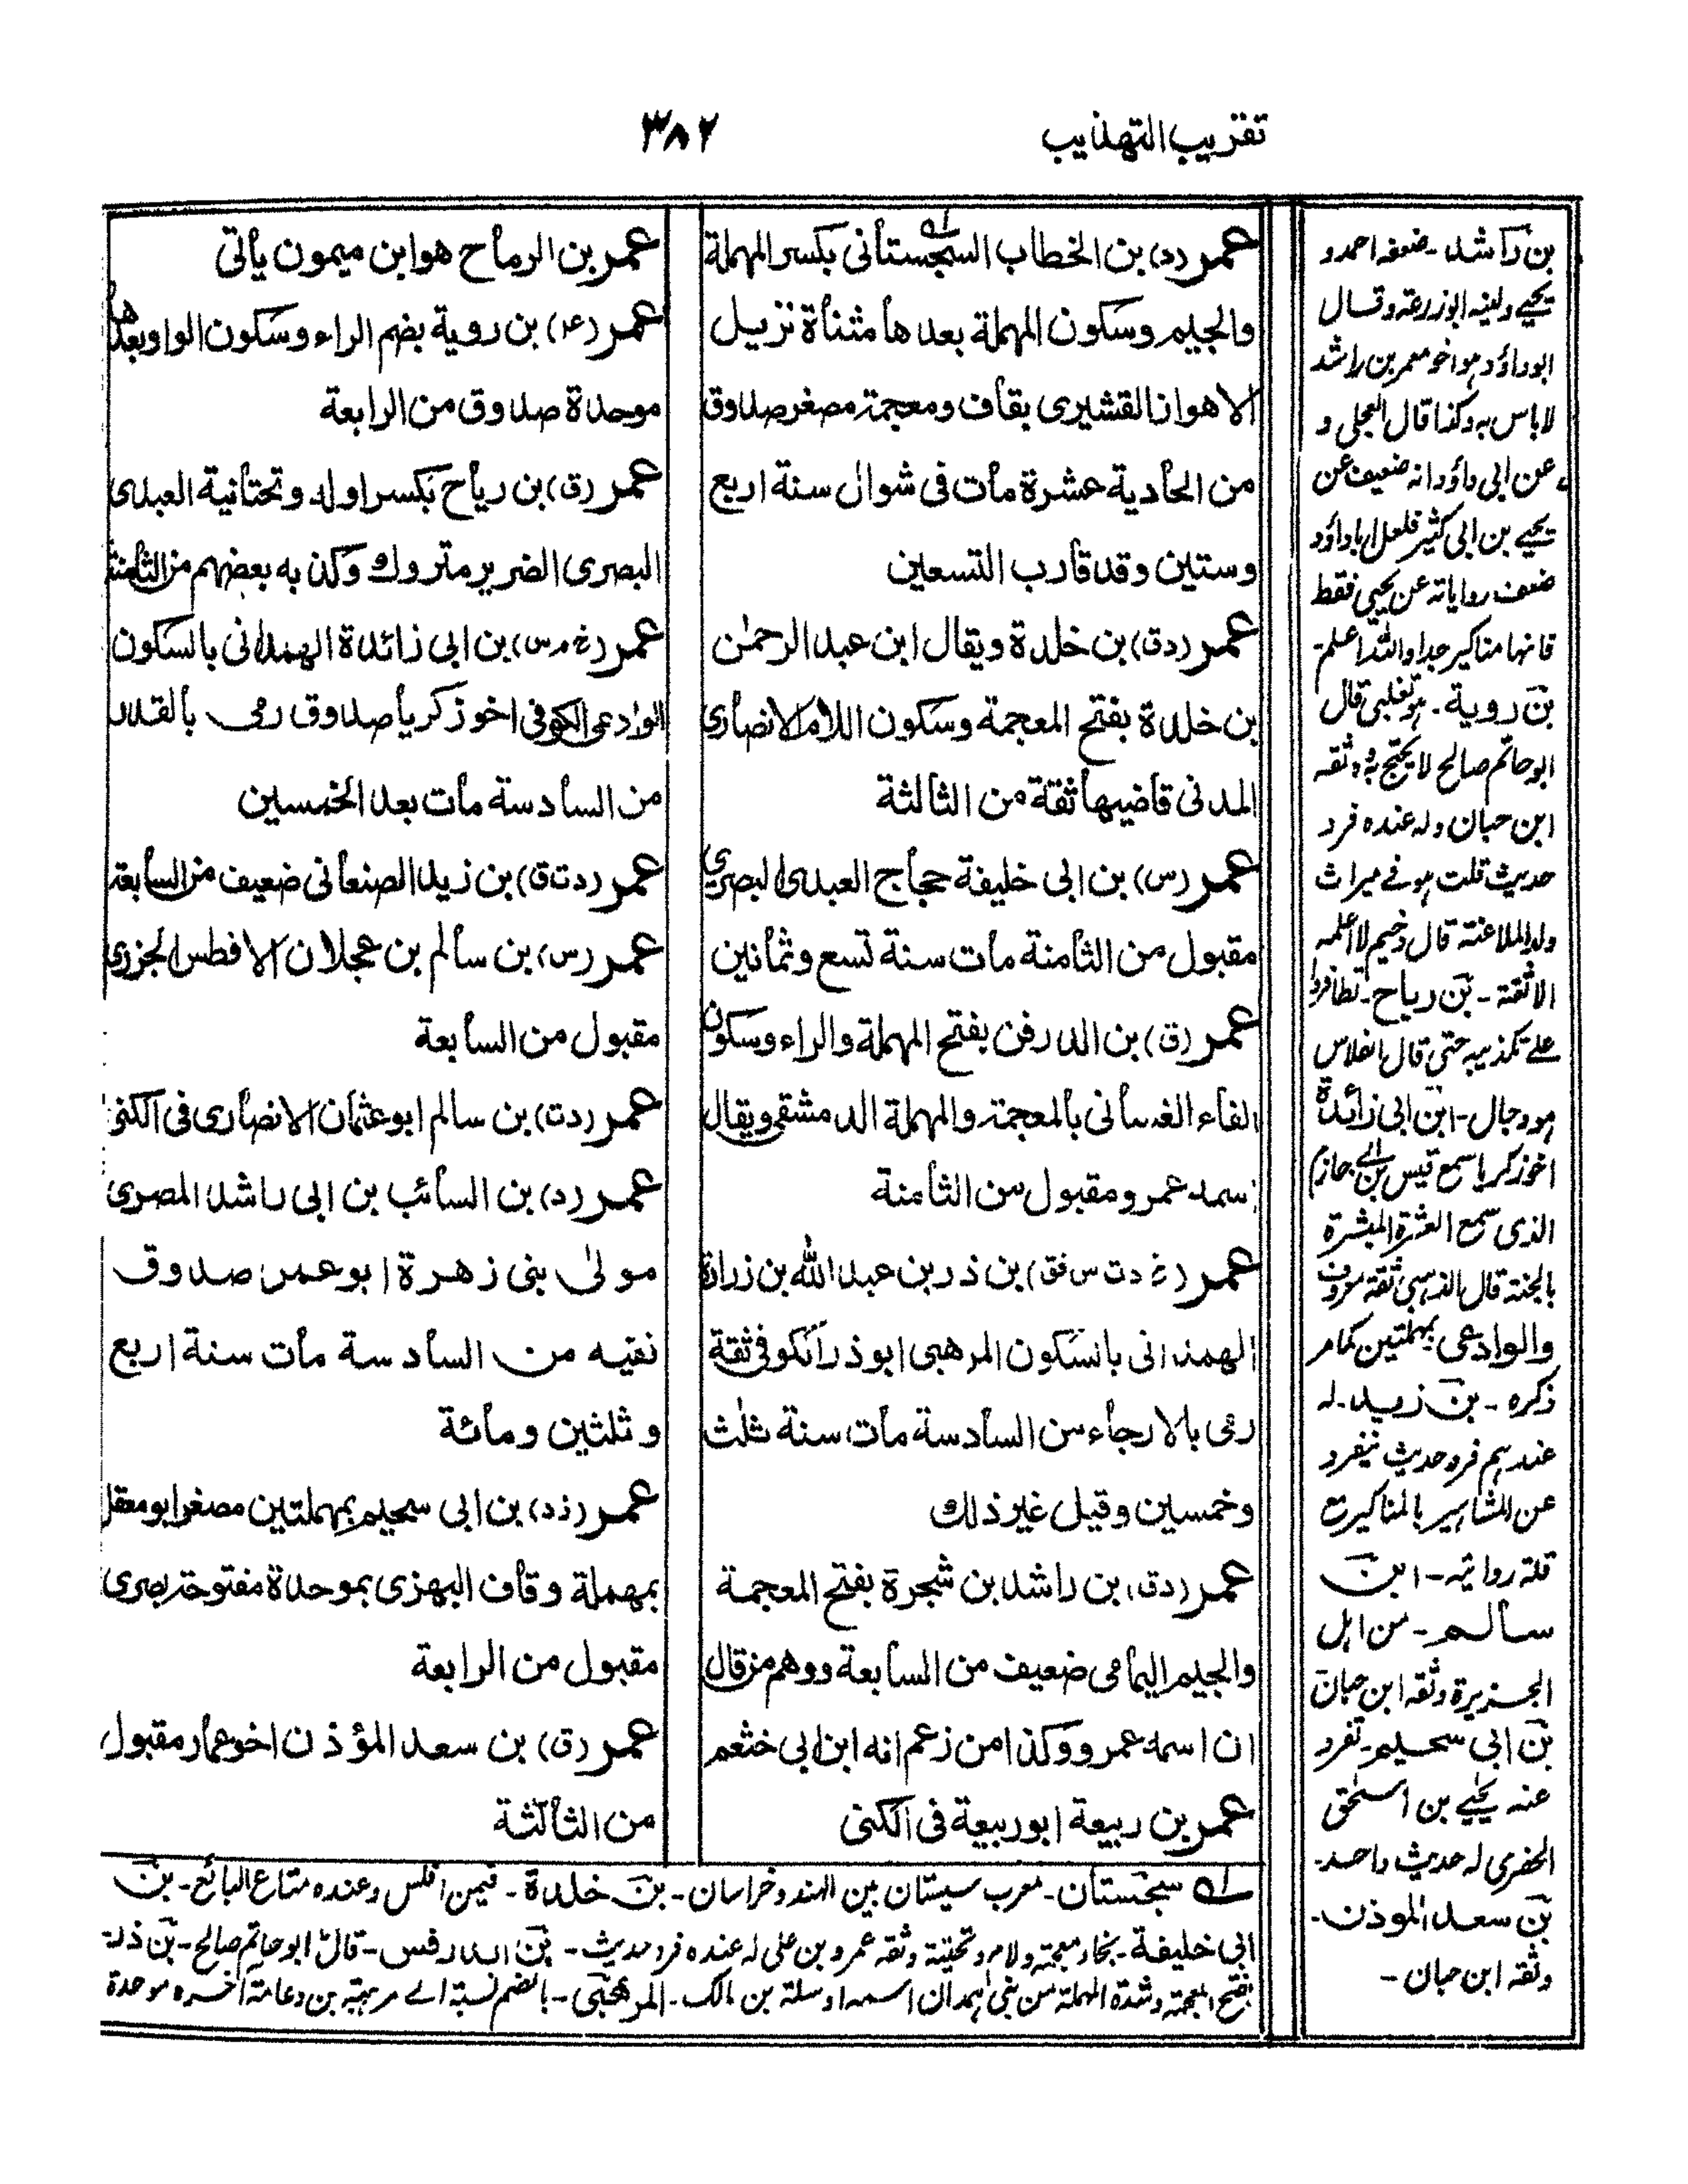 تقريب التهذيب
٣٨٢
عمر (د) بن الخطاب السجستاني بكسر المهملة
والجيم وسكون المهملة بعدها مثناة نزيل
الاهواز القشيري بقاف ومعجمة مصغر صدوق
من الحادية عشرة مات في شوال سنة اربع
وستين وقد قارب التسعين
عمر (دق) بن خلدة ويقال ابن عبد الرحمٰن
بن خلدة بفتح المعجمة وسكون اللام الانصاري
المدني قاضيها ثقة من الثالثة
عمر (س) بن ابي خليفة حجاج العبدي البصري
مقبول من الثامنة مات سنة تسع وثمانين
عمر (ق) بن الدرفس بفتح المهملة والراء وسكون
الفاء الغساني بالمعجمة والمهملة الدمشقي ويقال
اسمه عمرو مقبول من الثامنة
عمر (خ دت س فق) بن ذر بن عبد الله بن زرارة
الهمداني بالسكون المرهبي ابوذر الكوفي ثقة
رمى بالارجاء من السادسة مات سنة ثلٰث
وخمسين وقيل غير ذلك
عمر (دق) بن راشد بن شجرة بفتح المعجمة
والجيم اليمامي ضعيف من السابعة ووهم من قال
ان اسمه عمرو وكذا من زعم انه ابن ابي خثعم
عمر بن ربيعة ابو ربيعة في الكنى
عمر بن الرماح هو ابن ميمون ياتى
عمر (عه) بن روبة بضم الراء وسكون الواو وبعدها
موحدة صدوق من الرابعة
عمر (ق) بن رياح بكسر اوله وتحتانية العبدي
البصري الضرير متروك وكذبه بعضهم من الثامنة
عمر (خ م س) بن ابي زائدة الهمداني بالسكون
الوادعي الكوفي اخو زكريا صدوق رمى بالقدر
من السادسة مات بعد الخمسين
عمر (دت ق) بن زيد الصنعاني ضعيف من السابعة
عمر (س) بن سالم بن عجلان الافطس الجزري
مقبول من السابعة
عمر (دت) بن سالم ابو عثمان الانصاري في الكنى
عمر (د) بن السائب بن ابي راشد المصري
مولٰى بني زهرة ابو عمر صدوق
فقيه من السادسة مات سنة اربع
وثلثين ومائة
عمر (زد) بن ابي سحيم بمهملتين مصغر ابو معقل
بمهملة وقاف البهزي بموحدة مفتوحة بصري
مقبول من الرابعة
عمر (ق) بن سعد المؤذن اخو عمار مقبول
من الثالثة
بن راشد - ضعفه احمد و
يحيي ولينه ابوزرعة وقال
ابو داؤد هو اخو معمر بن راشد
لا باس به وكذا قال العجلي و
عن ابي داؤد انه ضعيف عن
يحيي بن ابي كثير فلعل اباداؤد
ضعف رواياته عن يحيي فقط
فانها مناكير جدا والله اعلم-
بن روبة - هو تغلبي قال
ابو حاتم صالح لا يحتج به وثقه
ابن حبان وله عنده فرد
حديث قلت هو في ميراث
ولد الملاعنة قال دحيم لا اعلمه
الا ثقة - بن رياح - تظافروا
علے تكذيبه حتى قال الفلاس
هو دجال - ابن ابي زائدة
اخو زكريا سمع قيس بن ابي حازم
الذي سمع العشرة المبشرة
بالجنة قال الذهبي ثقة معروف
والوادعي بمهملتين كما مر
ذكره - بن زيد - له
عندهم فرد حديث يتفرد
عن المشاهير بالمناكير مع
قلة روايته - ابن
سالم - من اهل
الجزيرة وثقه ابن حبان
بن ابي سحيم - تفرد
عنه يحيي بن اسحٰق
الحضرمي له حديث واحد -
بن سعد الموذن -
وثقه ابن حبان -
له سجستان - معرب سيستان بين الهند وخراسان - بن خلدة - فيمن افلس وعنده متاع البائع - بن
ابي خليفة - بخاء معجمة ولام وتحتية وثقه عمرو بن علي له عنده فرد حديث - بن الدرفس - قال ابو حاتم صالح - بن ذر -
بفتح المعجمة وشدة المهملة من بني همدان اسمه اوسلة بن مالك - المرهبي - بالضم نسبة الے مرهبة بن دعامة آخره موحدة